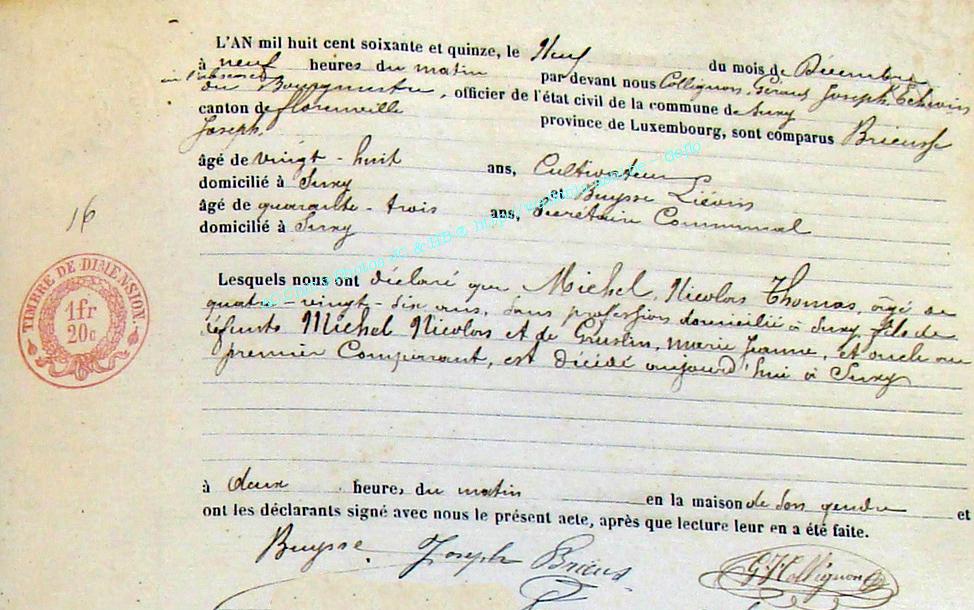 L'AN mil huit cent soixante et quinze, le Neuf du mois de Décembre
à neuf heures du matin par devant nous Collignon, Gérard Joseph Echevin
en l'absence
du Bourgmestre, officier de l'état civil de la commune de Suxy
canton de florenville province de Luxembourg, sont comparus Brieusse
Joseph,
âgé de vingt-huit ans, Cultivateur
domicilié à Suxy et Buysse Liévin
âgé de quarante-trois ans, Secrétaire Communal
domicilié à Suxy
16
TIMBRE DE DIMENSION.
1fr
20c
Lesquels nous ont déclaré que Michel, Nicolas Thomas, âgé de
quatre-vingt-dix ans, sans profession domicilié à Suxy, fils de
défunts Michel Nicolas et de Gruslin, Marie Jeanne, et oncle au
premier Comparant, est décédé aujourd'hui à Suxy
à deux heures du matin en la maison de son gendre et
ont les déclarants signé avec nous le présent acte, après que lecture leur en a été faite.
Buysse. Joseph Brieus GJCollignon